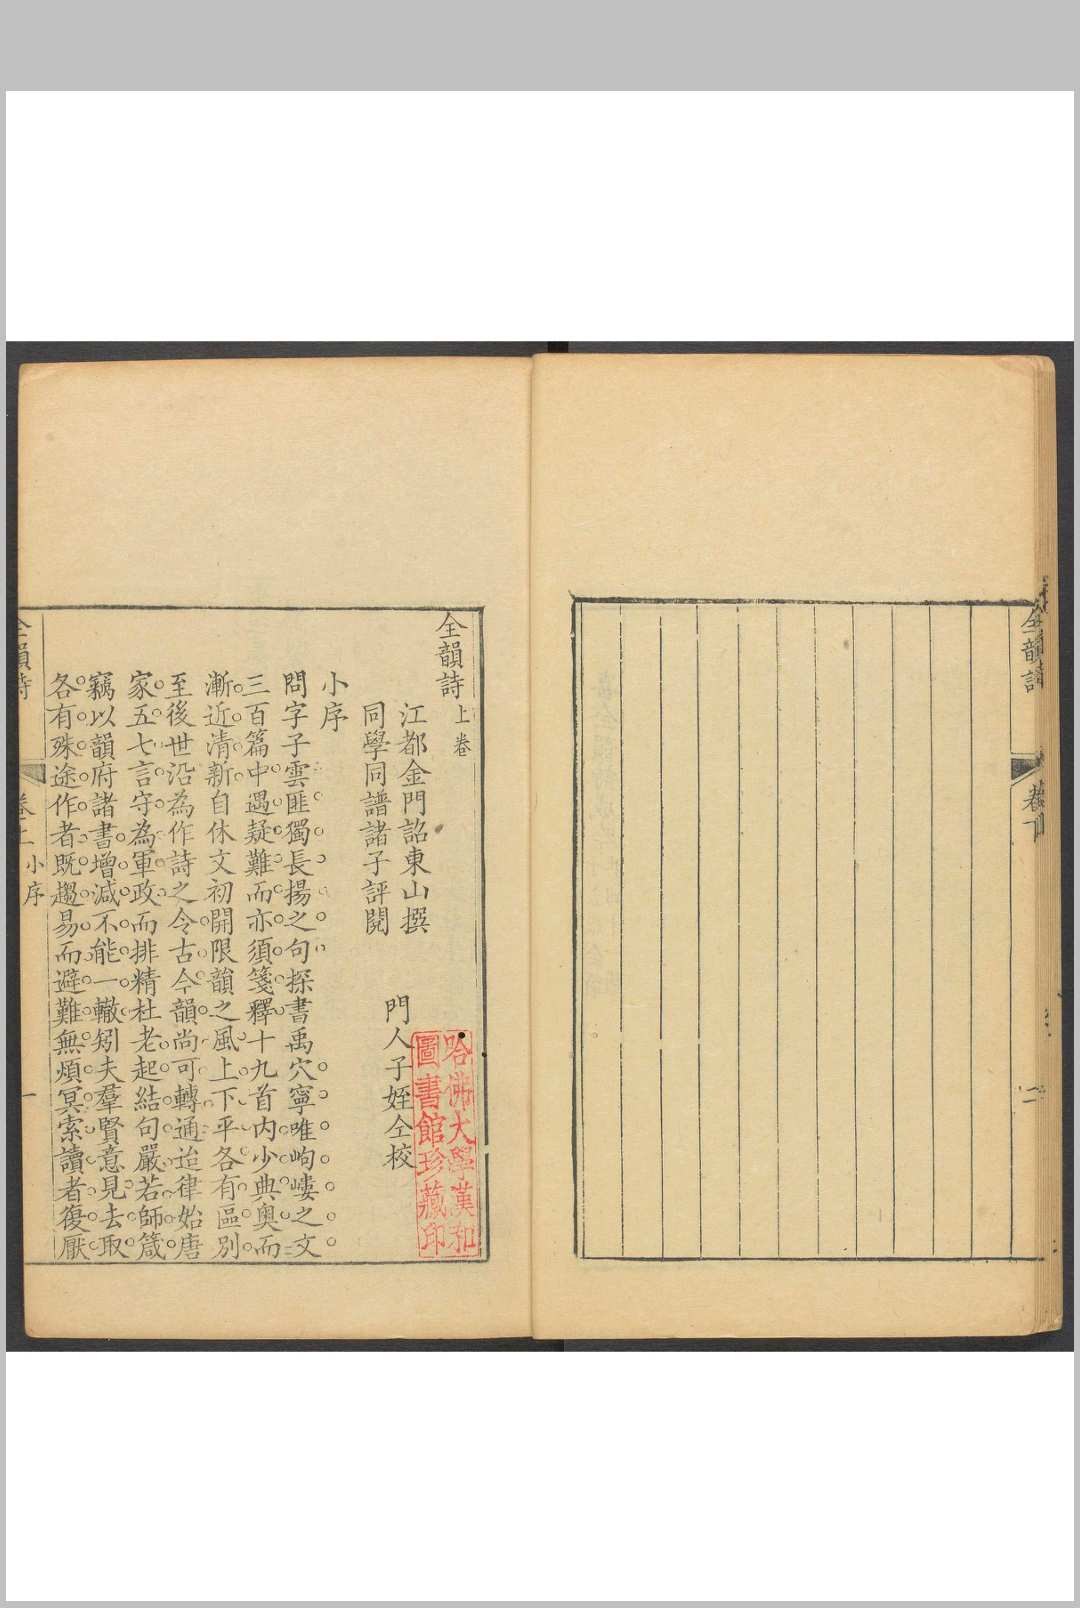 全韻詩
卷
全韻詩上卷
江都金門詔東山撰
同學同譜諸子評閱
門人子姪仝校
哈佛大學漢和
圖書館珍藏印
小序
問字子雲匪獨長揚之句探書禹穴寧唯岣嶁之文
三百篇中遇疑難而亦須箋釋十九首内少典奥而
漸近清新自休文初開限韻之風上下平各有區別
至後世沿為作詩之令古今韻尚可轉通迨律始唐
家五七言守為軍政而排精杜老起結句嚴若師箴
竊以韻府諸書增減不能一轍矧夫羣賢意見去取
各有殊途作者既趨易而避難無煩冥索讀者復厭
全韻詩
卷上
小序
一